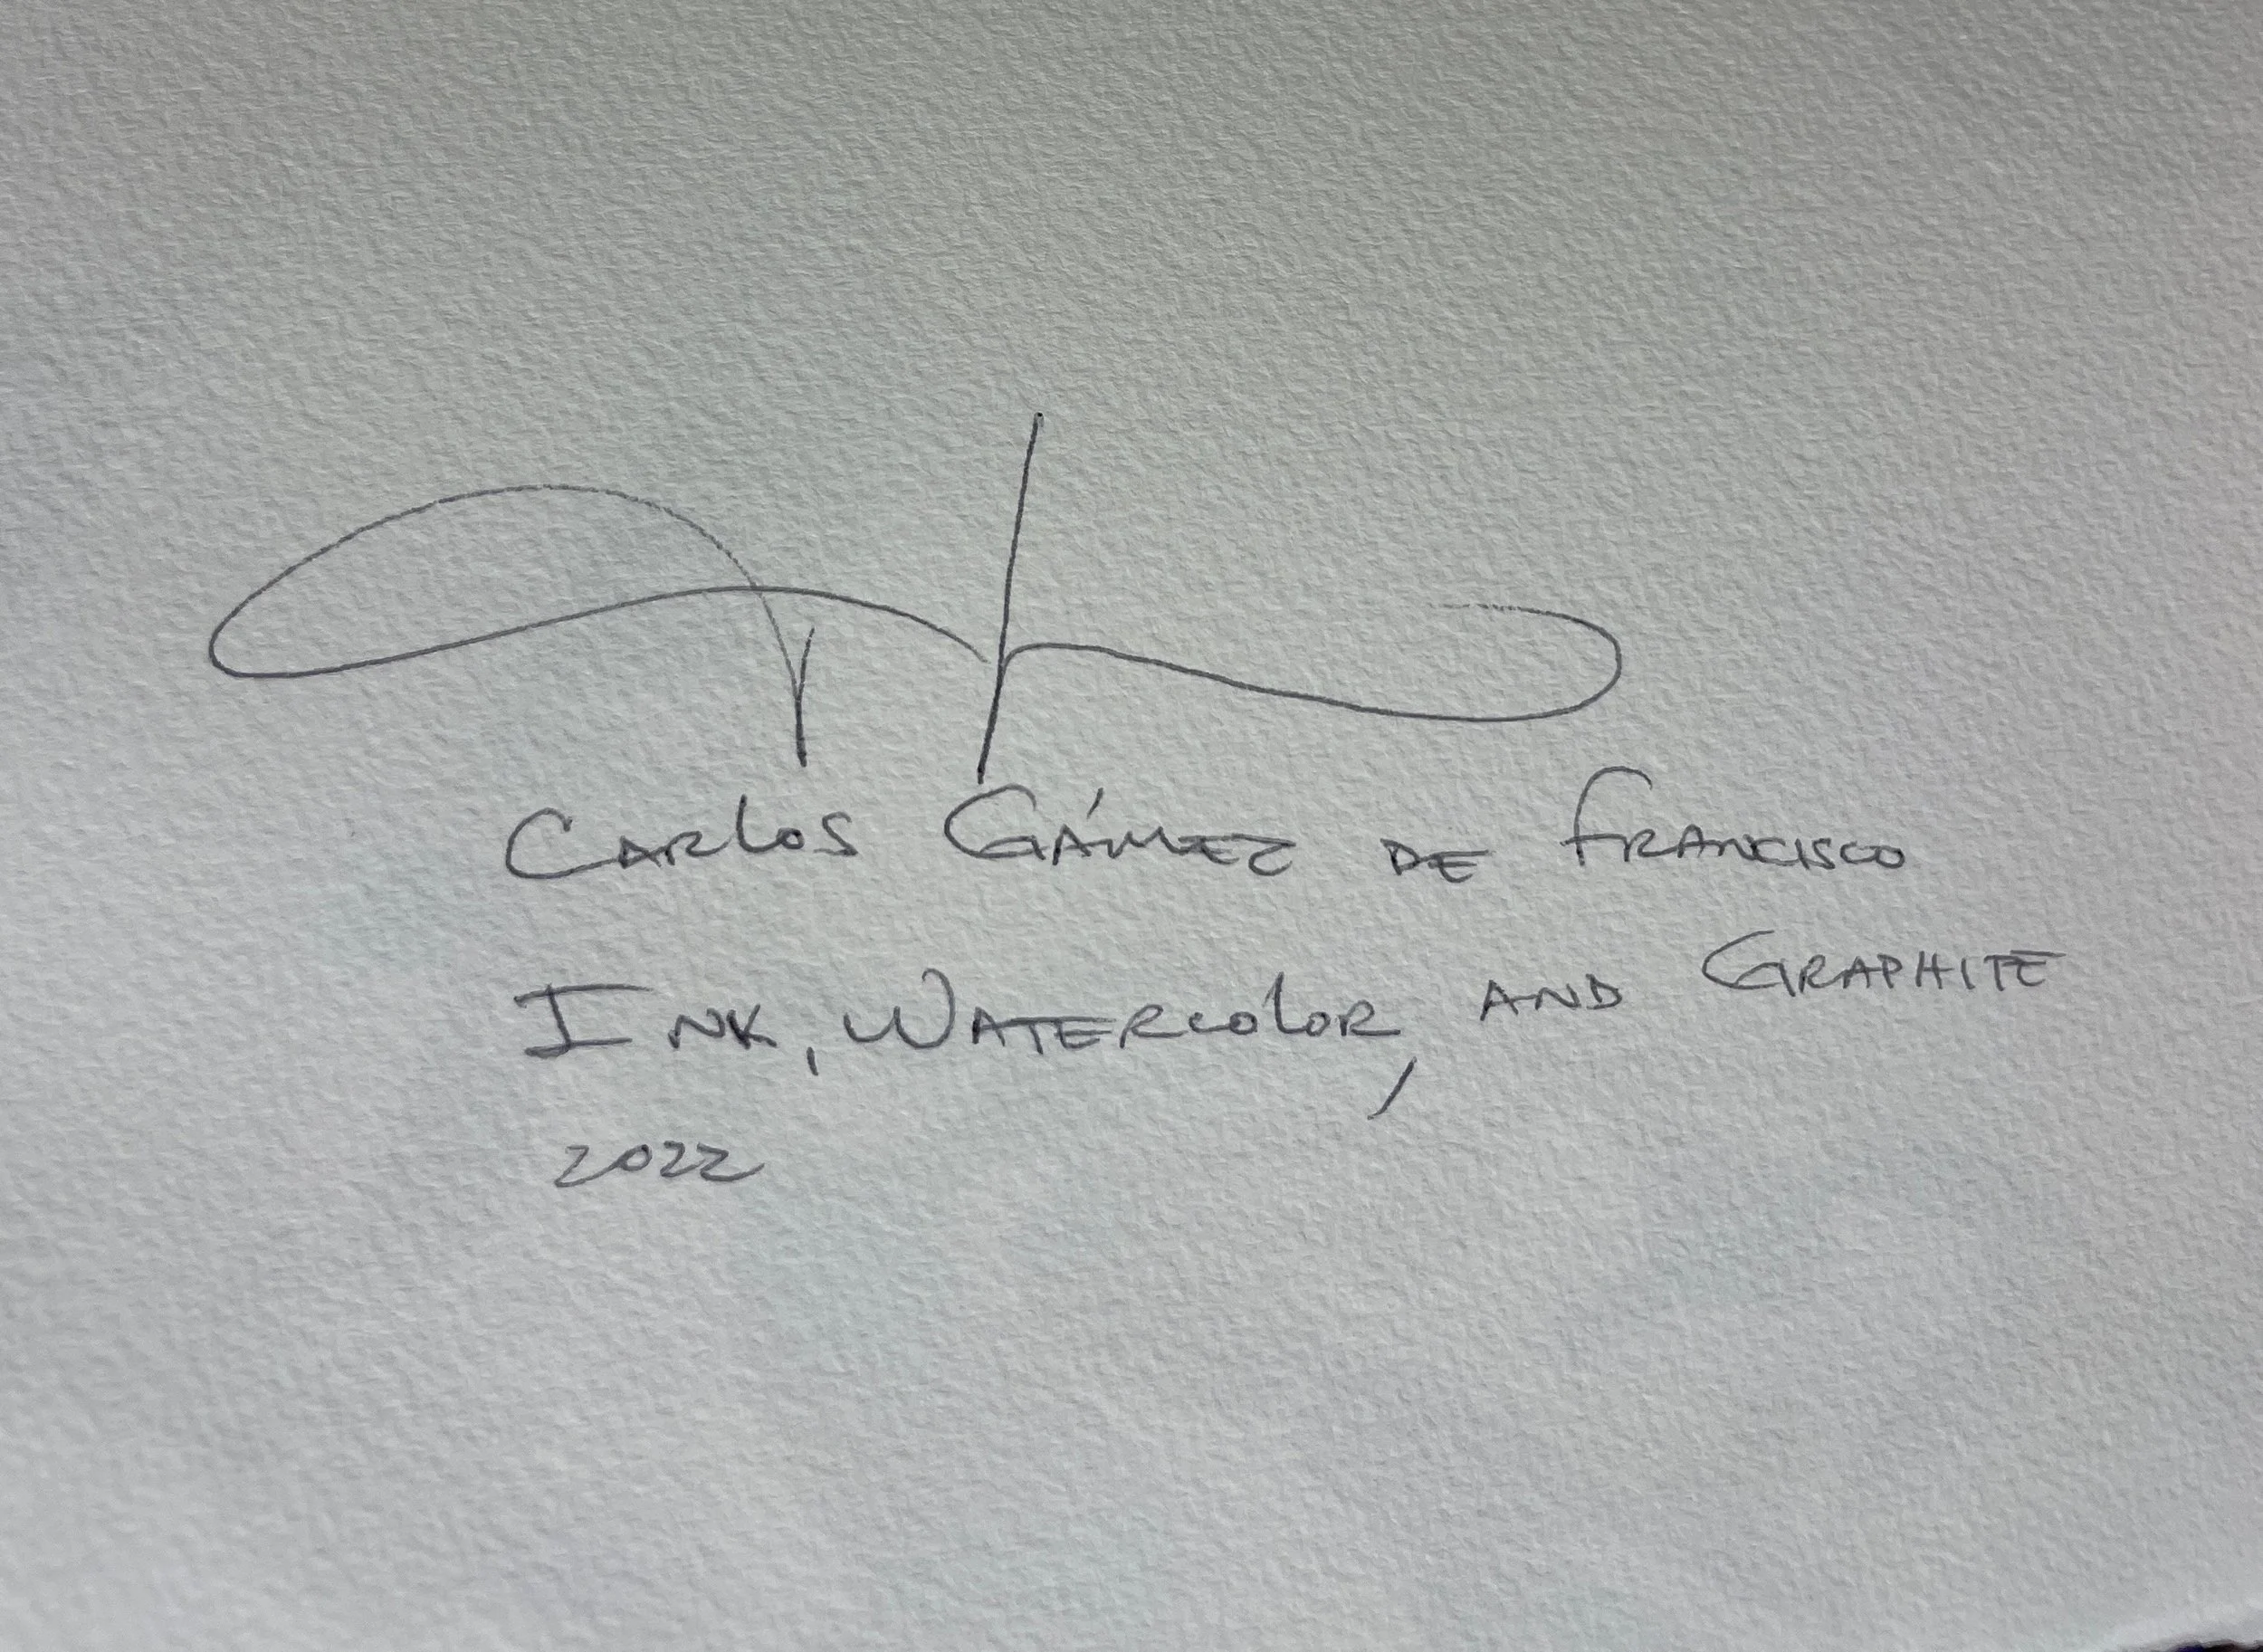 Carlos Gámez de Francisco
Ink, Watercolor, and Graphite
2022